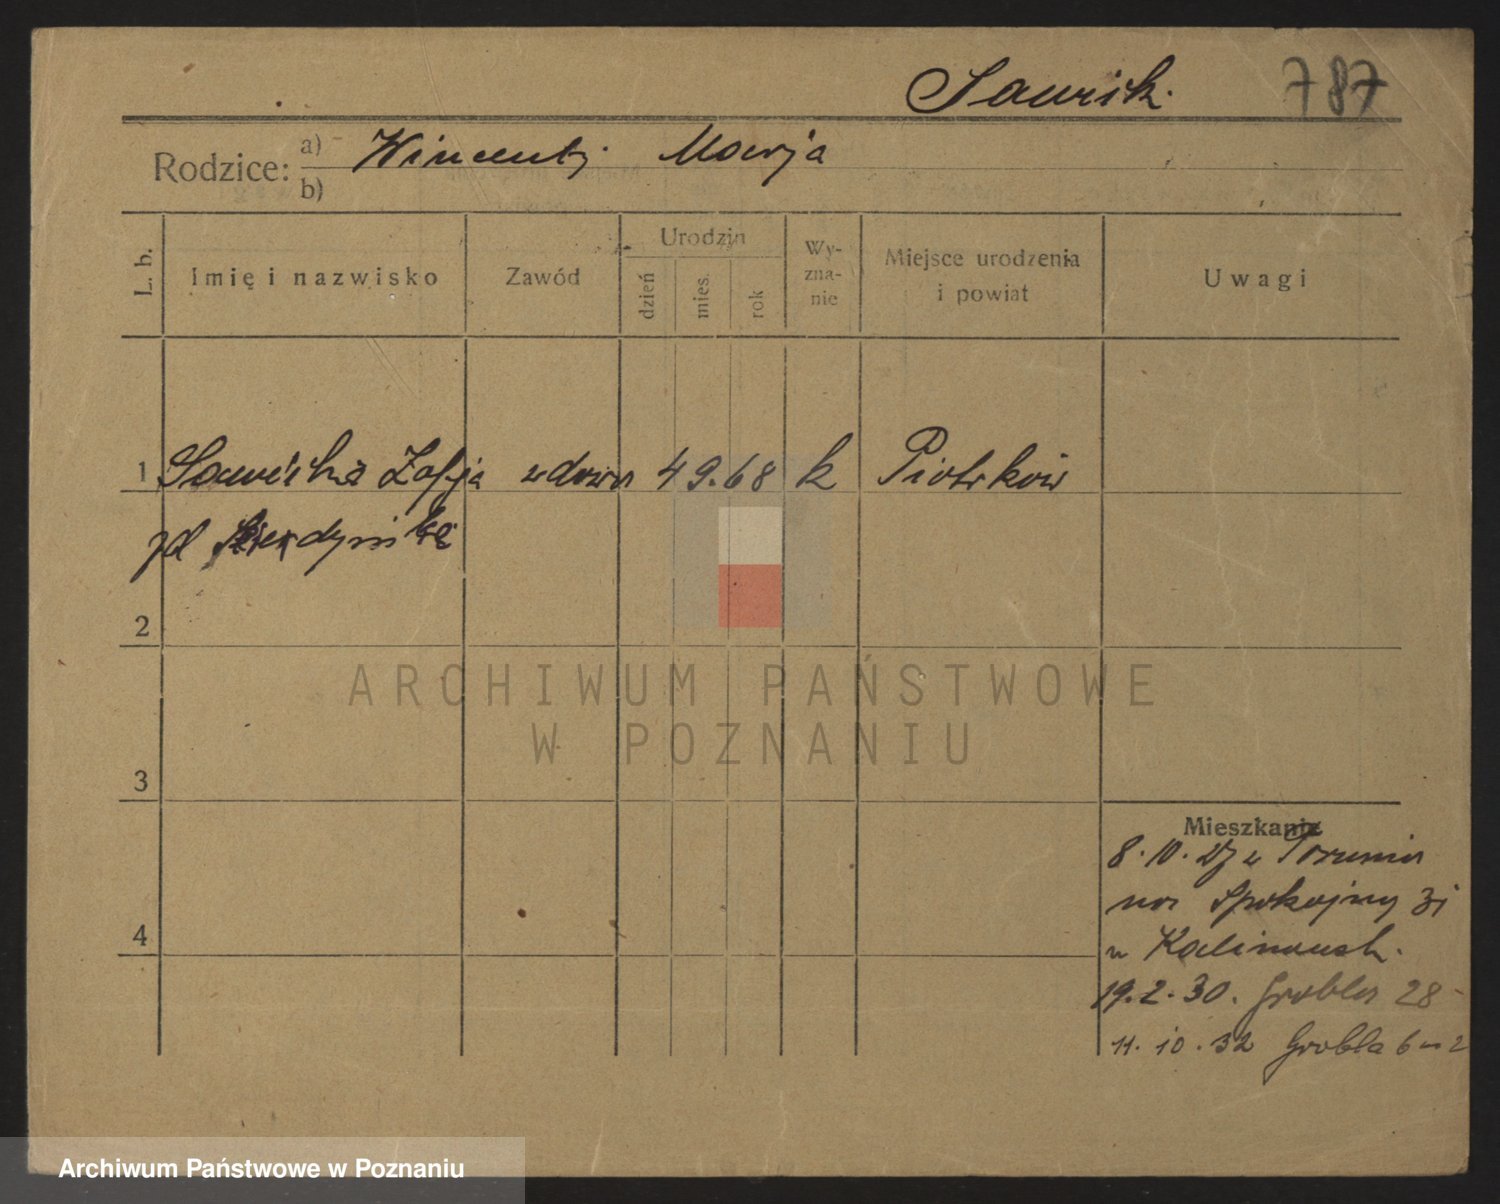 787
Rodzice: a) Wincenty Marja
b)
L. b.
Imię i nazwisko
Zawód
Urodzin
dzień
mies.
rok
Wy-
zna-
nie
Miejsce urodzenia
i powiat
Uwagi
1 Sawicka Zofja wdowa 4 9. 68 k Piotrków
zd
2
ARCHIWUM PAŃSTWOWE
W POZNANIU
3
Mieszkanie
8. 10. z Torunia
na Spokojny 31
4
u
19. 2. 30. Grobla 28
11. 10. 32 Grobla 6 m 2
Archiwum Państwowe w Poznaniu